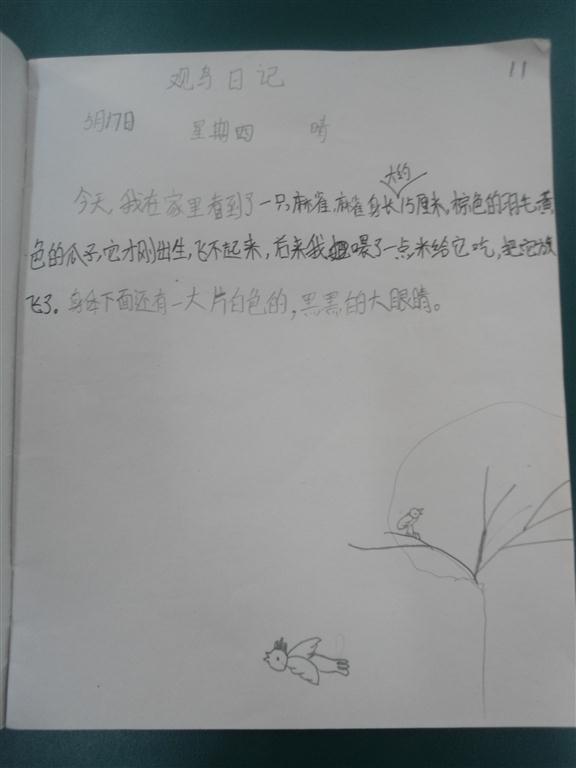 11
观鸟日记
5月17日 星期四 晴
大约
今天,我在家里看到了一只麻雀,麻雀身长15厘米,棕色的羽毛黄
色的瓜子,它才刚出生,飞不起来,后来我嚼了一点米给它吃,把它放
飞了。身体下面还有一大片白色的,黑黑的大眼睛。